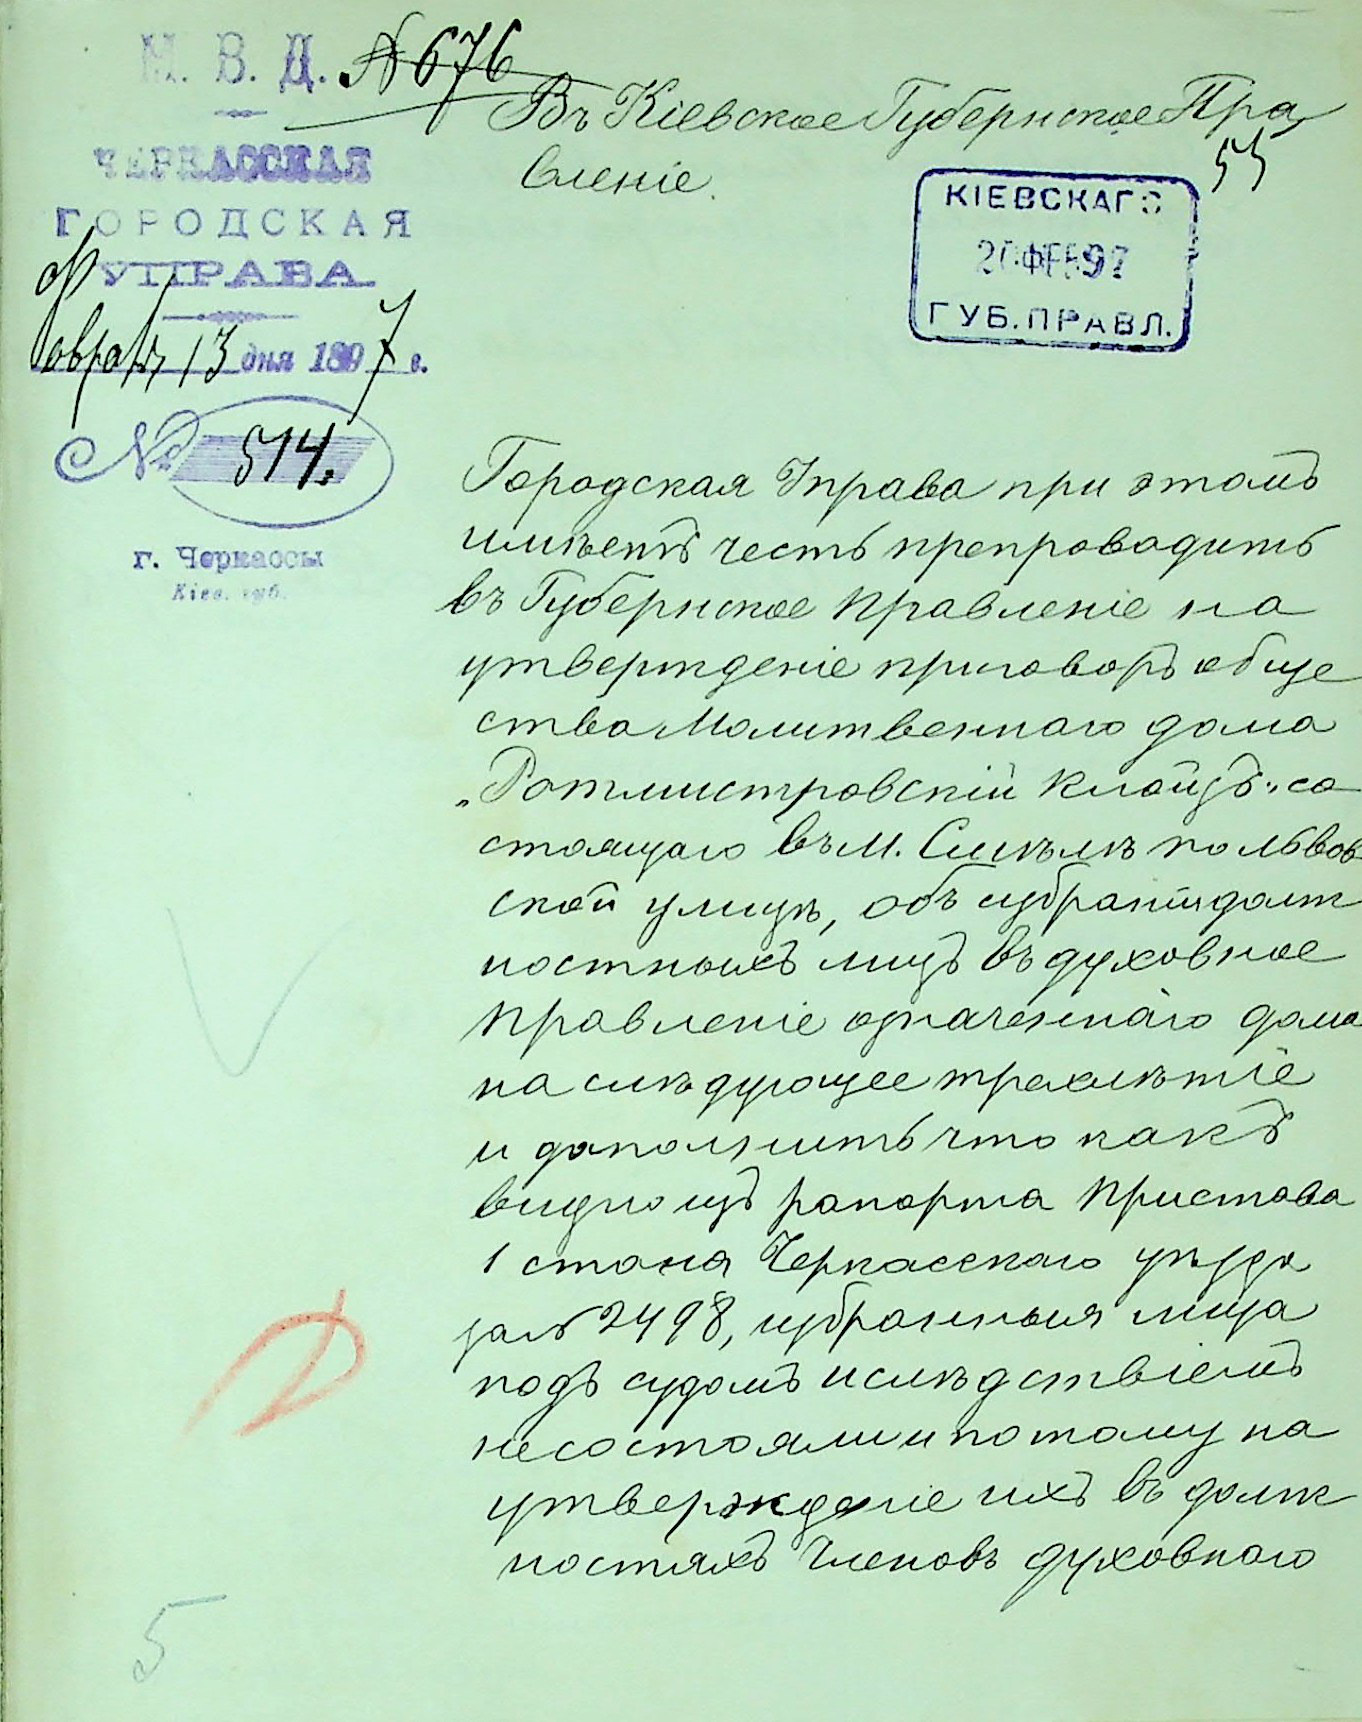 М. В. Д. № 676
Въ Кіевское Губернское Пра
вленіе.
55
ЧЕРКАССКАЯ
ГОРОДСКАЯ
УПРАВА
Февраля 13 дня 1897 г.
№ 514.
г. Черкассы
Кіев. губ.
КІЕВСКАГО
20 ФЕВ 97
ГУБ. ПРАВЛ.
Городская Управа при этомъ
имѣетъ честь препроводить
въ Губернское Правленіе на
утвержденіе приговоръ обще
ства Молитвеннаго дома
„Ротмистровскій Клойзъ“ со
стоящаго въ м. Смѣлѣ по Львов
ской улицѣ, объ избраніи долж
ностныхъ лицъ въ духовное
Правленіе означеннаго дома
на слѣдующее трехлѣтіе
и дополнить что какъ
видно изъ рапорта Пристава
1 стана Черкасскаго уѣзда
за № 2498, избранныя лица
подъ судомъ и слѣдствіемъ
не состояли и потому на
утвержденіе ихъ въ долж
ностяхъ Членовъ духовнаго
5